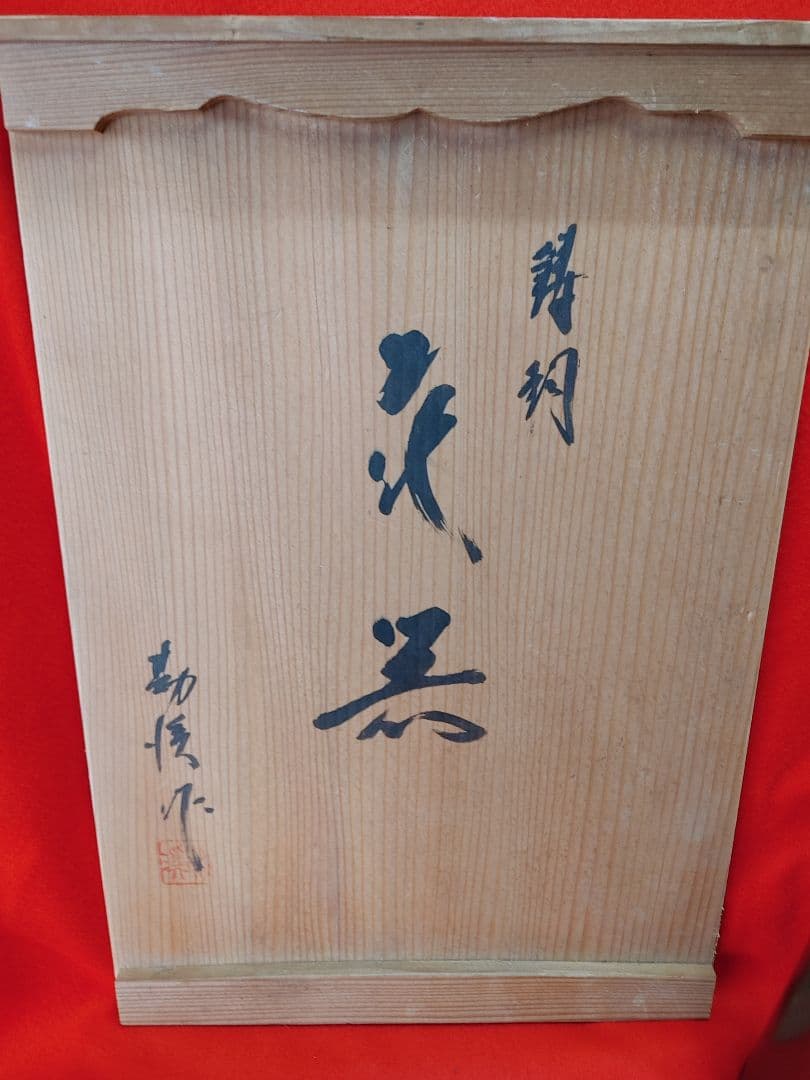 鋳銅
花器
勘渓作